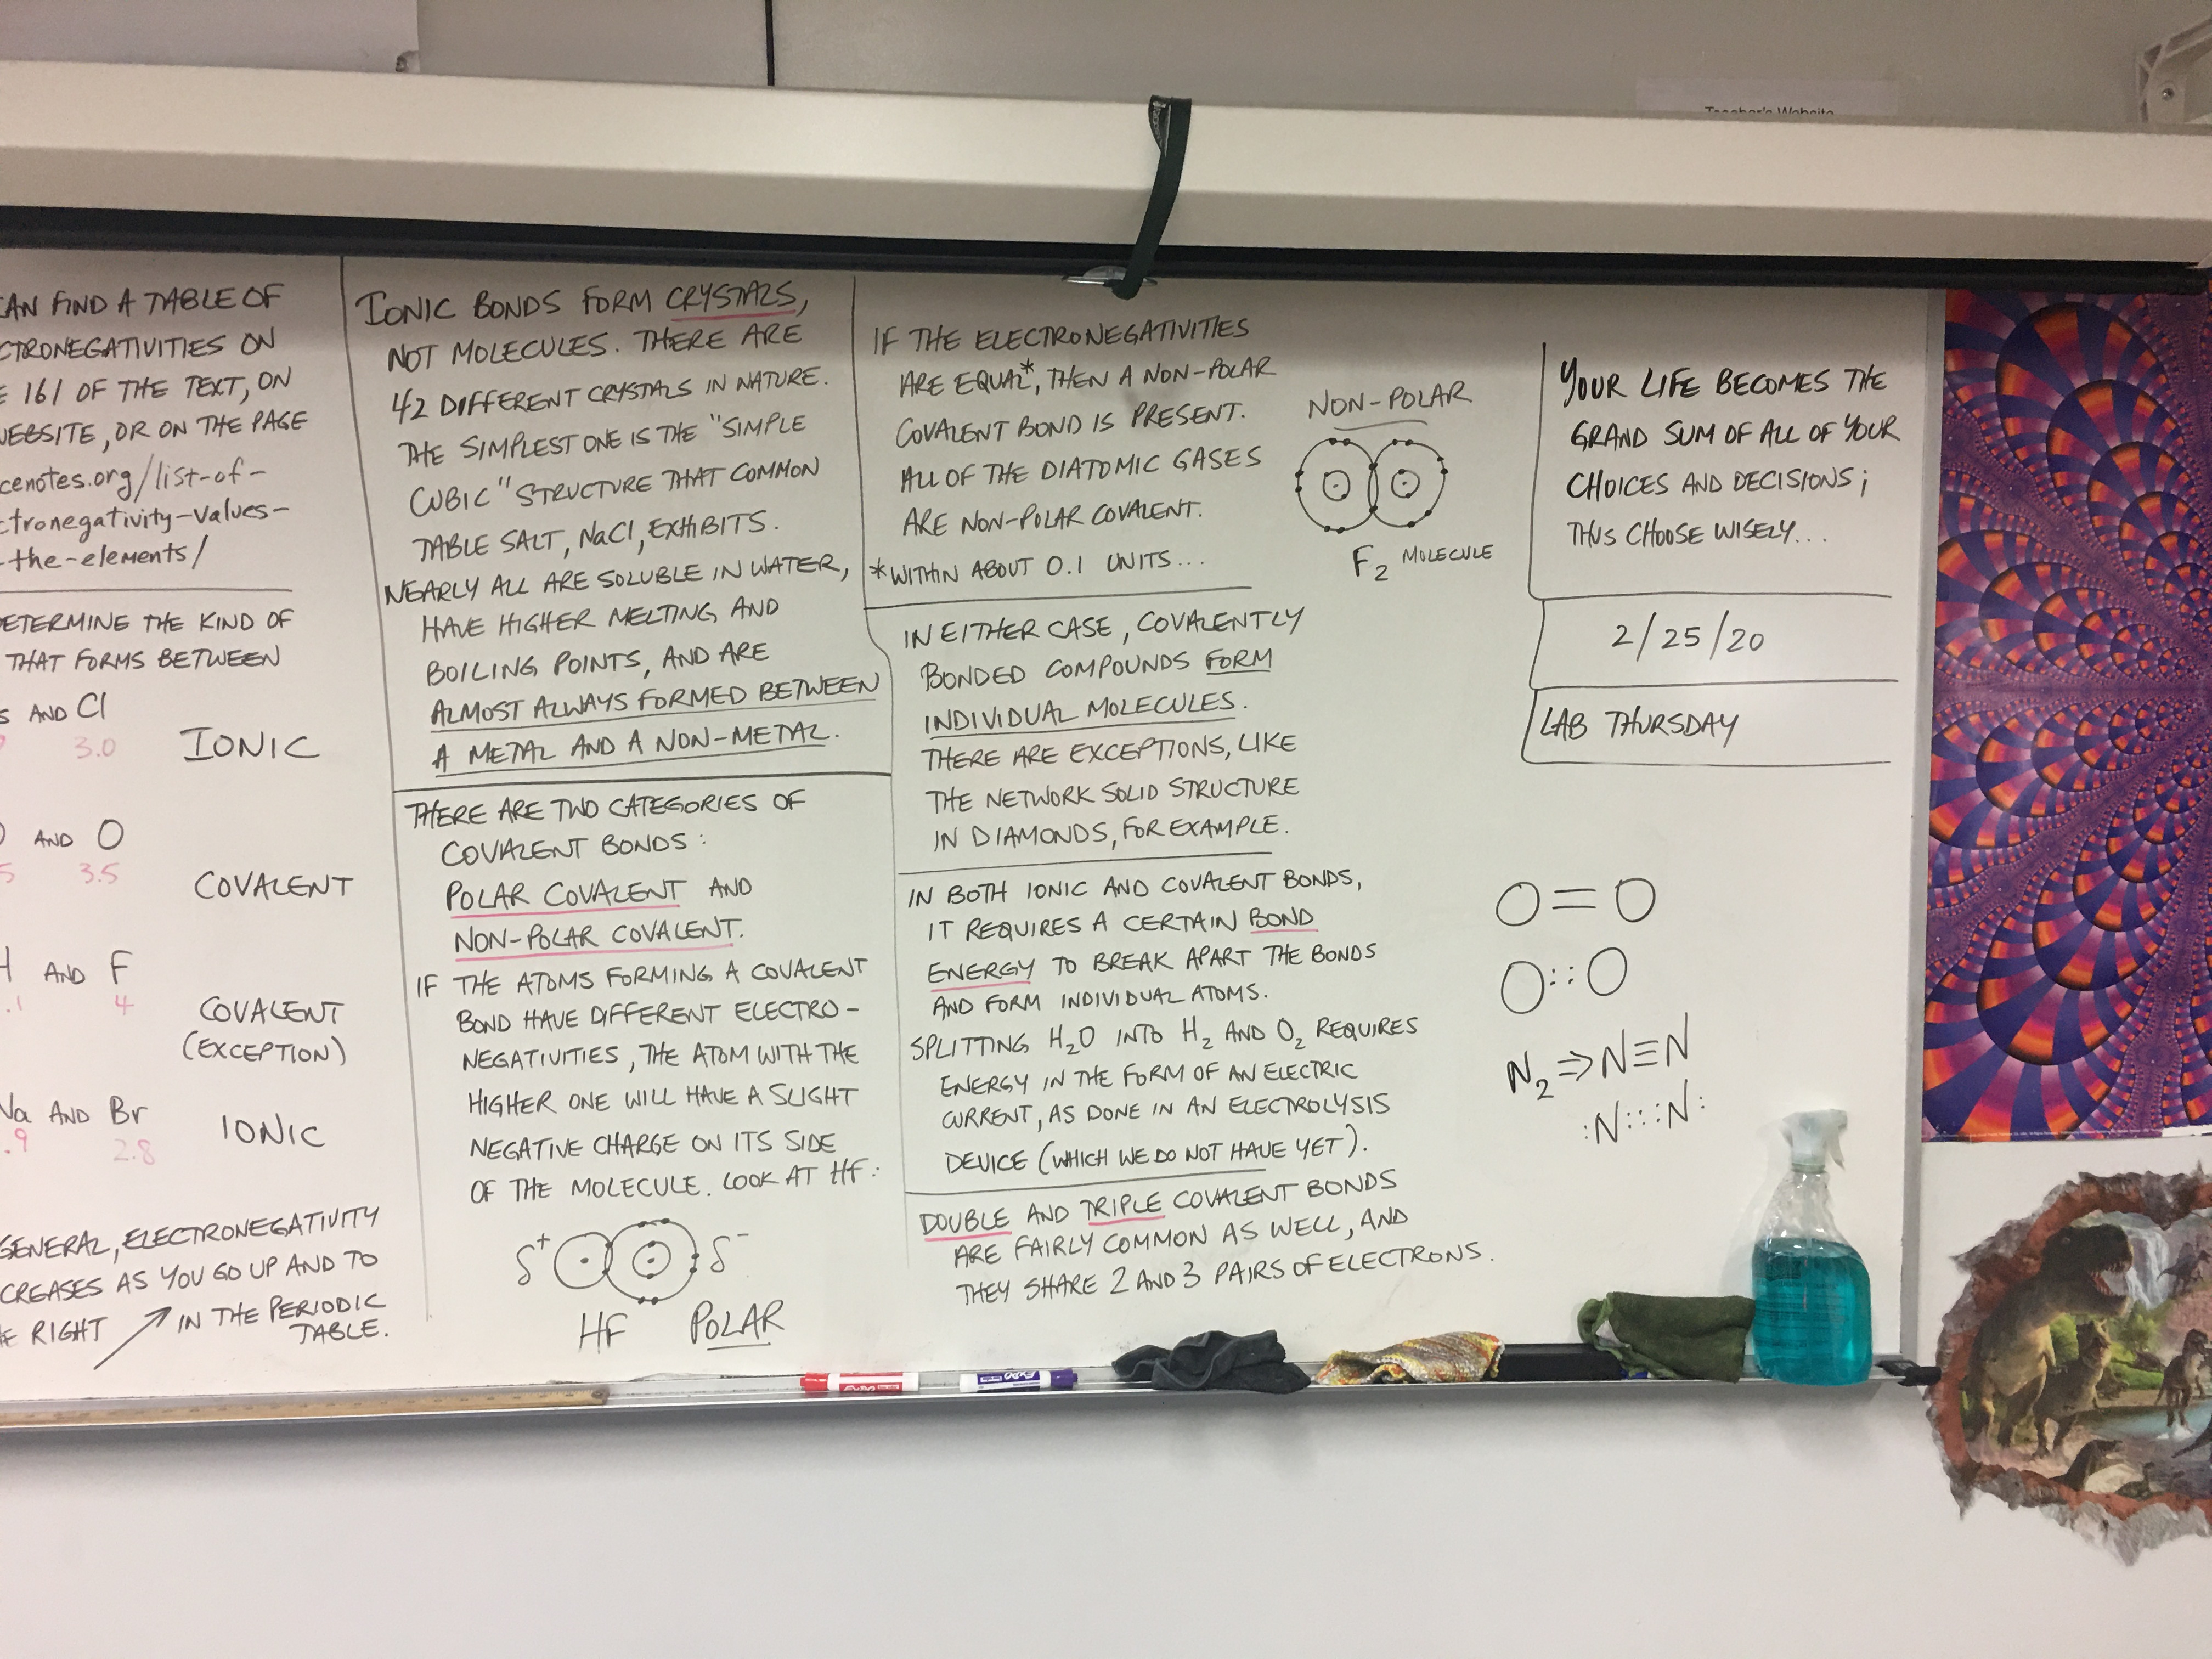 Teacher's Website
CAN FIND A TABLE OF
CTRONEGATIVITIES ON
E 161 OF THE TEXT, ON
WEBSITE, OR ON THE PAGE
cenotes.org/list-of-
ctronegativity-values-
-the-elements/
DETERMINE THE KIND OF
THAT FORMS BETWEEN
S AND Cl
3.0
IONIC
AND O
5 3.5
COVALENT
H AND F
.1 4
COVALENT
(EXCEPTION)
Na AND Br
.9 2.8
IONIC
GENERAL, ELECTRONEGATIVITY
CREASES AS YOU GO UP AND TO
E RIGHT IN THE PERIODIC
TABLE.
IONIC BONDS FORM CRYSTALS,
NOT MOLECULES. THERE ARE
42 DIFFERENT CRYSTALS IN NATURE.
THE SIMPLEST ONE IS THE "SIMPLE
CUBIC" STRUCTURE THAT COMMON
TABLE SALT, NaCl, EXHIBITS.
NEARLY ALL ARE SOLUBLE IN WATER,
HAVE HIGHER MELTING AND
BOILING POINTS, AND ARE
ALMOST ALWAYS FORMED BETWEEN
A METAL AND A NON-METAL.
THERE ARE TWO CATEGORIES OF
COVALENT BONDS:
POLAR COVALENT AND
NON-POLAR COVALENT.
IF THE ATOMS FORMING A COVALENT
BOND HAVE DIFFERENT ELECTRO-
NEGATIVITIES, THE ATOM WITH THE
HIGHER ONE WILL HAVE A SLIGHT
NEGATIVE CHARGE ON ITS SIDE
OF THE MOLECULE. LOOK AT HF:
δ+ δ-
HF POLAR
IF THE ELECTRONEGATIVITIES
ARE EQUAL*, THEN A NON-POLAR
COVALENT BOND IS PRESENT.
ALL OF THE DIATOMIC GASES
ARE NON-POLAR COVALENT.
*WITHIN ABOUT 0.1 UNITS...
NON-POLAR
F2 MOLECULE
IN EITHER CASE, COVALENTLY
BONDED COMPOUNDS FORM
INDIVIDUAL MOLECULES.
THERE ARE EXCEPTIONS, LIKE
THE NETWORK SOLID STRUCTURE
IN DIAMONDS, FOR EXAMPLE.
IN BOTH IONIC AND COVALENT BONDS,
IT REQUIRES A CERTAIN BOND
ENERGY TO BREAK APART THE BONDS
AND FORM INDIVIDUAL ATOMS.
SPLITTING H2O INTO H2 AND O2 REQUIRES
ENERGY IN THE FORM OF AN ELECTRIC
CURRENT, AS DONE IN AN ELECTROLYSIS
DEVICE (WHICH WE DO NOT HAVE YET).
DOUBLE AND TRIPLE COVALENT BONDS
ARE FAIRLY COMMON AS WELL, AND
THEY SHARE 2 AND 3 PAIRS OF ELECTRONS.
O=O
O::O
N2⇒N≡N
:N:::N:
YOUR LIFE BECOMES THE
GRAND SUM OF ALL OF YOUR
CHOICES AND DECISIONS;
THUS CHOOSE WISELY...
2/25/20
LAB THURSDAY
EXPO
EXPO